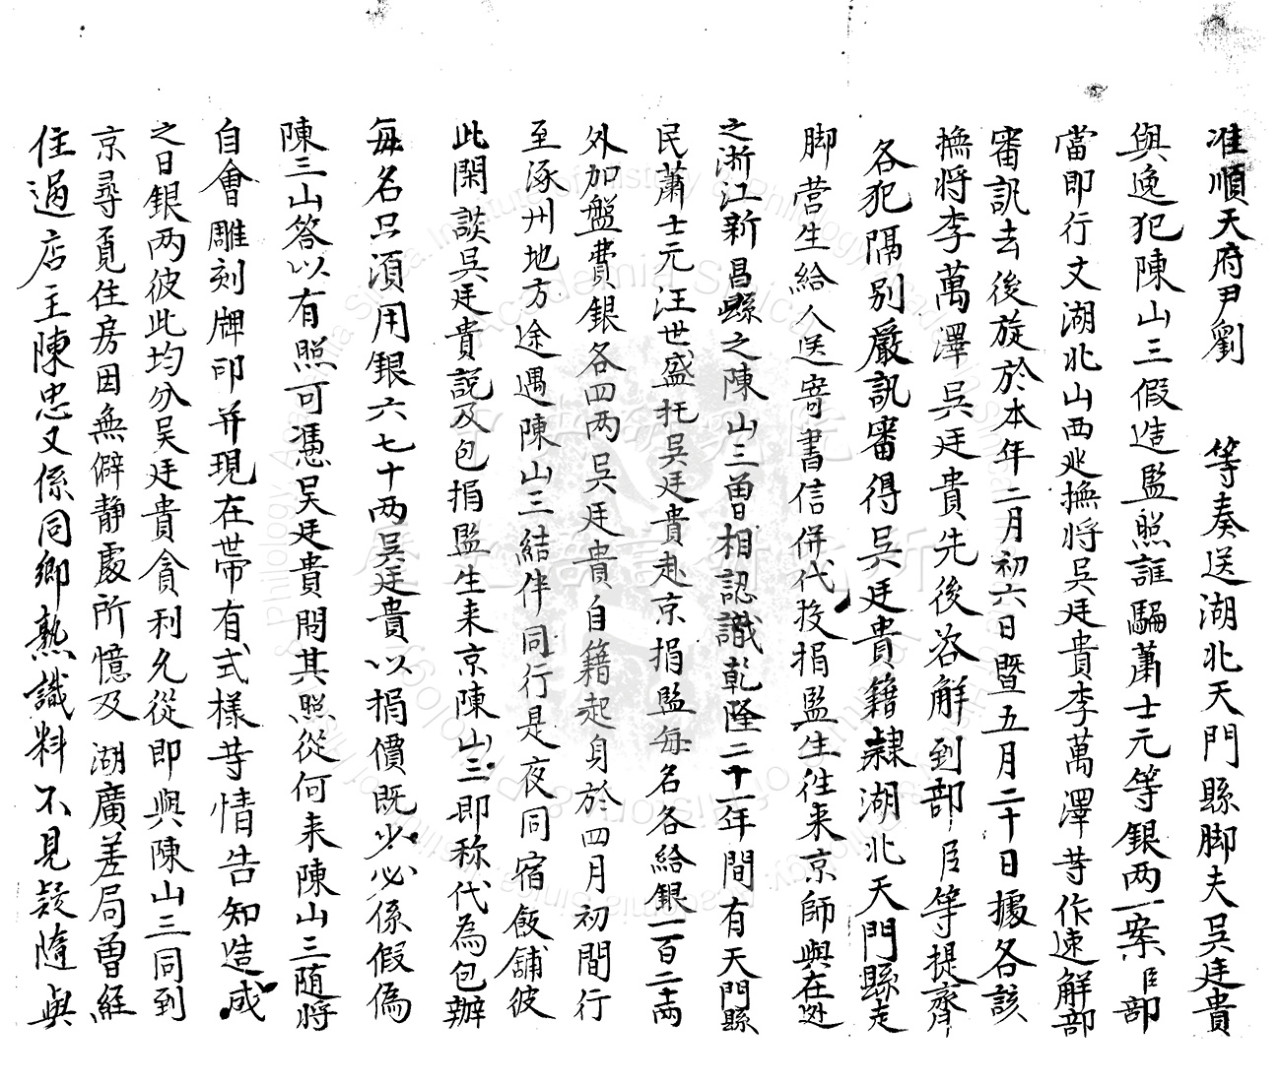 准順天府尹劉　等奏送湖北天門縣脚夫吳廷貴
與逸犯陳山三假造監照誆騙蕭士元等銀两一案臣部
當即行文湖北山西廵撫將吳廷貴李萬澤等作速解部
審訊去後旋於本年二月初六日暨五月二十日據各該
撫將李萬澤吳廷貴先後咨解到部臣等提齊
各犯隔别嚴訊審得吳廷貴籍隸湖北天門縣走
脚营生給人送寄書信併代投捐監生徃来京師與在逃
之浙江新昌縣之陳山三曽相認識乾隆二十一年間有天門縣
民蕭士元汪世盛托吳廷貴赴京捐監每名各給銀一百二十两
外加盤費銀各四两吳廷貴自籍起身於四月初間行
至涿州地方途遇陳山三結伴同行是夜同宿飯舖彼
此閑談吳廷貴説及包捐監生来京陳山三即称代為包辦
每名只須用銀六七十两吳廷貴以捐價既少必係假偽
陳三山答以有照可憑吳廷貴問其照從何来陳山三随將
自會雕刻牌印并現在帶有式樣等情告知造成
之日銀两彼此均分吴廷貴貪利允從即與陳山三同到
京尋覓住房因無僻静處所憶及湖廣差局曽經
住過店主陳忠又係同鄉熟識料不見疑随與